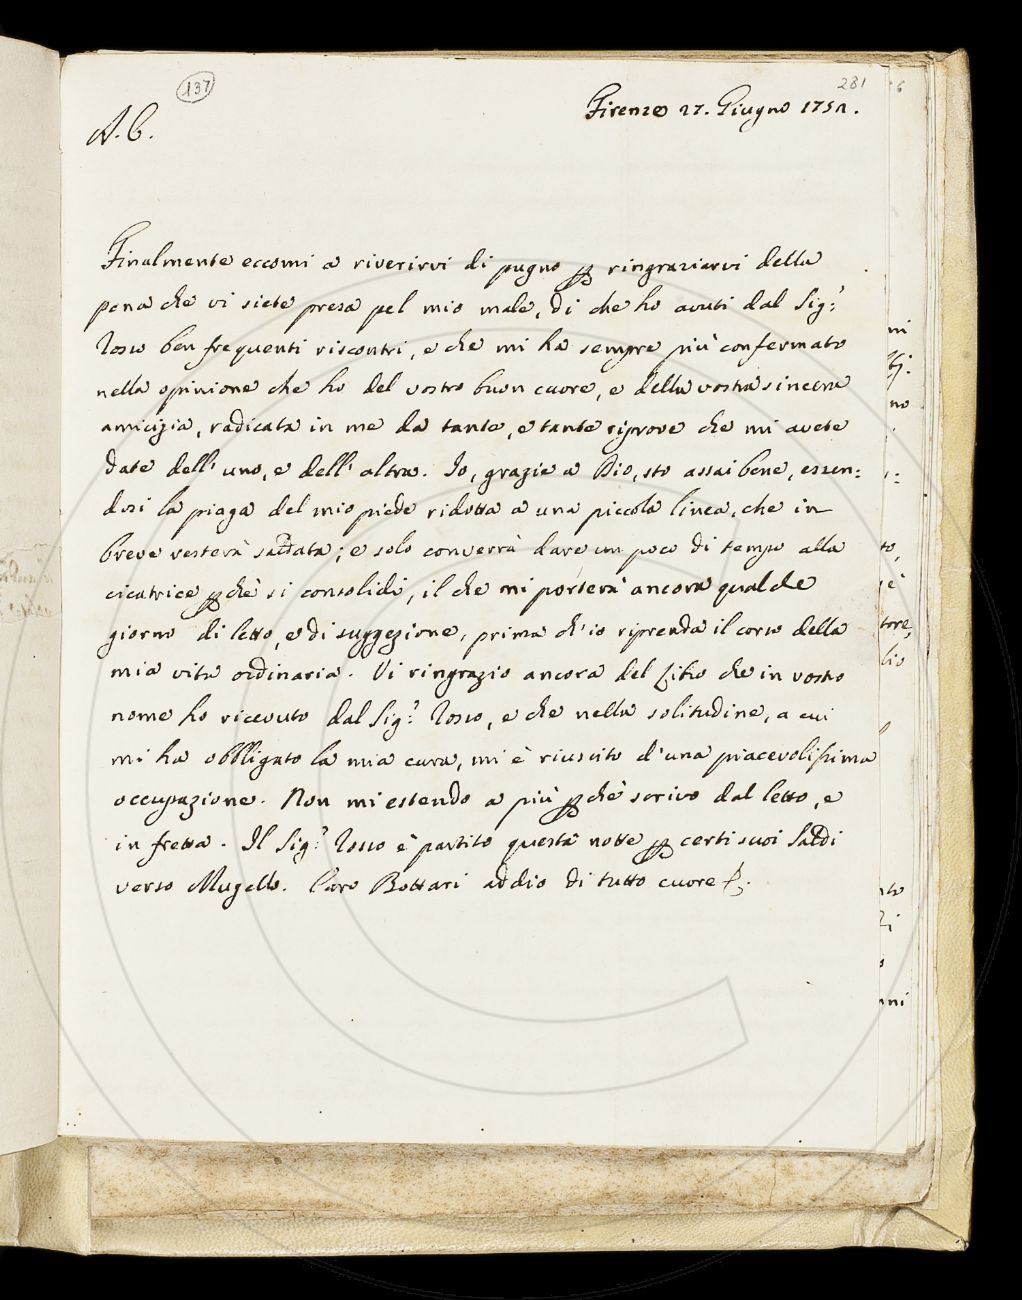 137
281
Firenze 27. Giugno 1751.
A. C.
Finalmente eccomi a riverirvi di pugno p ringraziarvi della
pena che vi siete presa pel mio male, di che ho avuti dal Sig:r
ben frequenti riscontri, e che mi ha sempre più confermato
nella opinione che ho del vostro buon cuore, e della vostra sincera
amicizia, radicata in me da tante, e tante riprove che mi avete
date dell'uno, e dell'altra. Io, grazie a Dio, sto assai bene, essen=
dosi la piaga del mio piede ridotta a una piccola linea, che in
breve resterà saldata; e solo converrà dare un poco di tempo alla
cicatrice pchè si consolidi, il che mi porterà ancora qualche
giorno di letto, e di suggezione, prima ch'io riprenda il corso della
mia vita ordinaria. Vi ringrazio ancora del che in vostro
nome ho ricevuto dal Sig:r e che nella solitudine, a cui
mi ha obbligato la mia cura, mi è riuscito d'una piacevolissima
occupazione. Non mi estendo a più pchè scrivo dal letto, e
in fretta. Il Sig:r è partito questa notte p certi suoi Saldi
verso Mugello. Caro Bottari addio di tutto cuore